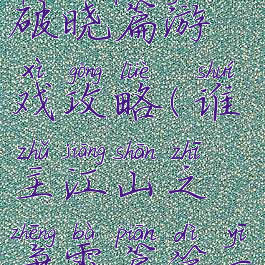 破晓篇游
xì gōng lüè shuí
戏攻略(谁
zhǔ jiāng shān zhī
主江山之
zhēng bà piān dì yī
争霸篇第一